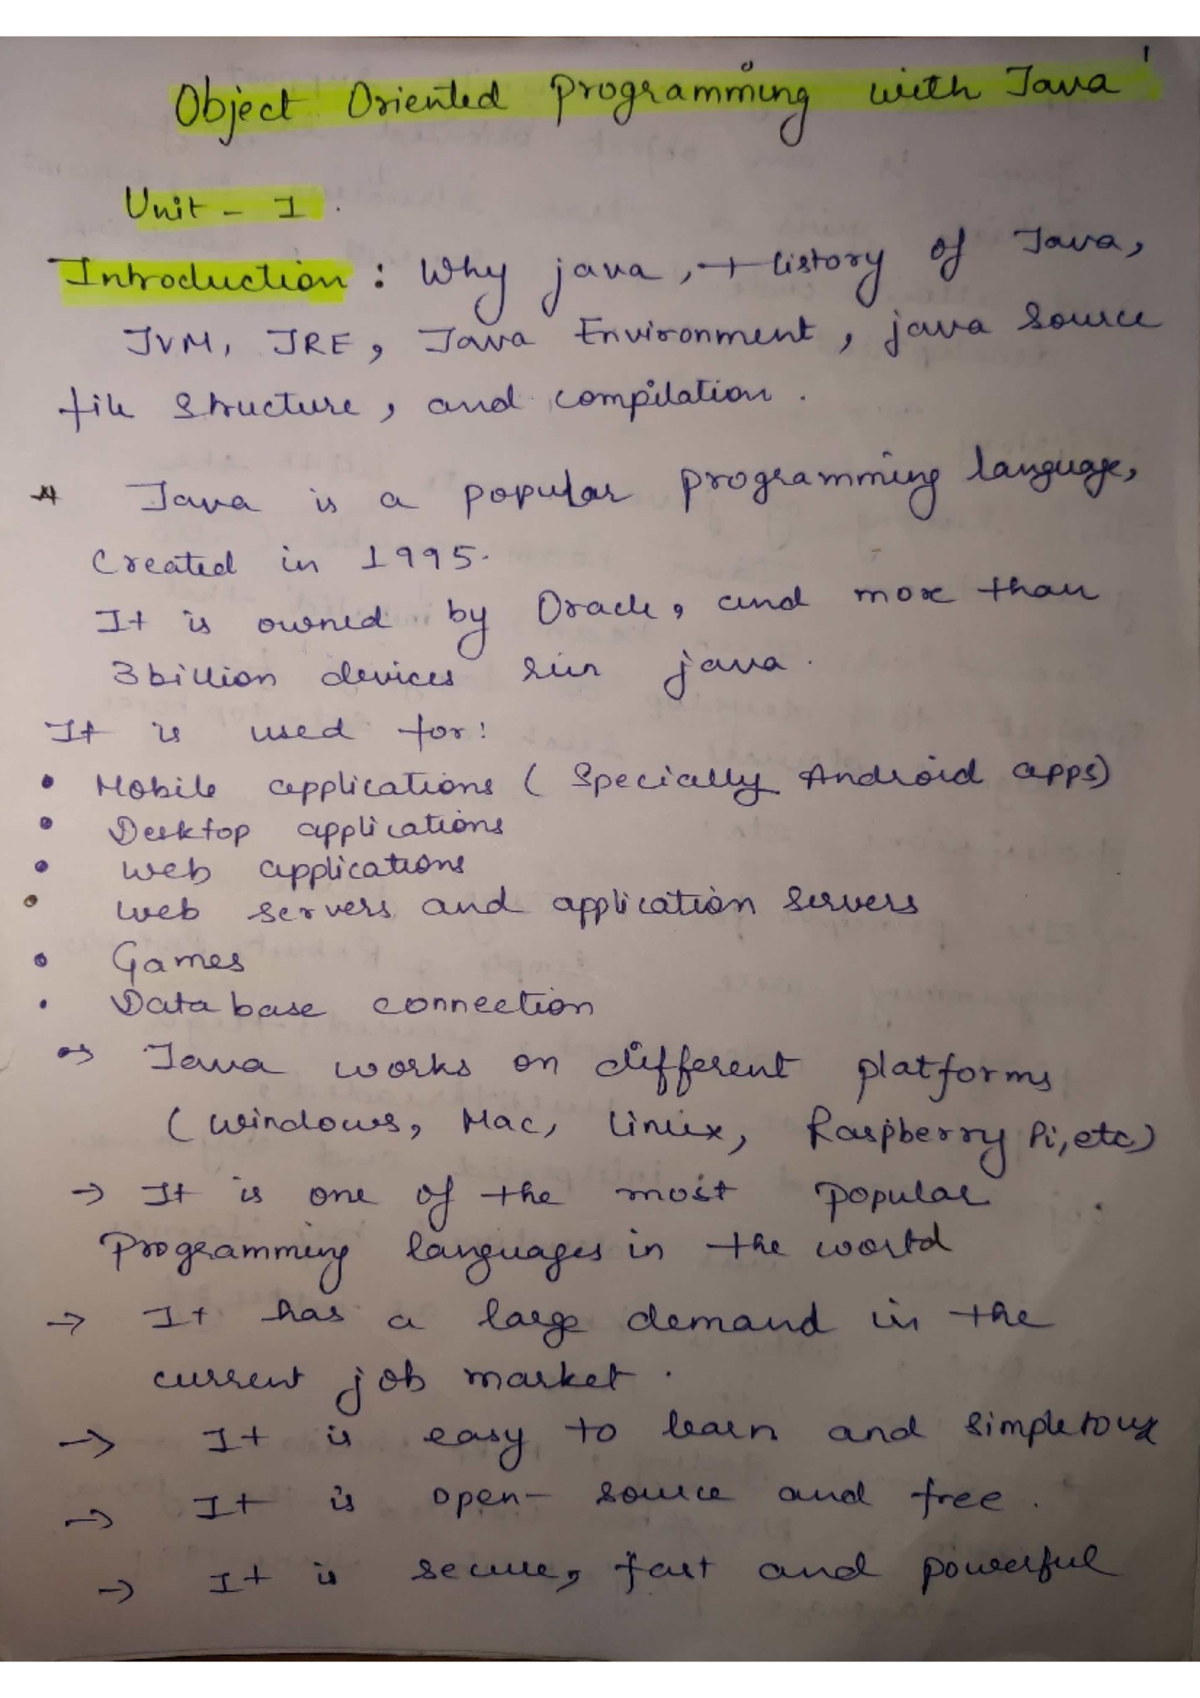 1
Object Oriented Programming with Java
Unit - I
Introduction : Why java, History of Java,
JVM, JRE, Java Environment, java source
file structure, and compilation.
Java is a popular programming language,
Created in 1995.
It is owned by Oracle, and more than
3 billion devices run java.
It is used for:
• Mobile applications ( Specially Android apps)
• Desktop applications
• Web applications
• web servers and application servers
• Games
• Database connection
→ Java works on different platforms
(windows, Mac, Linux, Raspberry Pi, etc)
→ It is one of the most popular
Programming languages in the world
→ It has a large demand in the
current job market.
→ It is easy to learn and simple to use
→ It is open-source and free.
→ It is secure, fast and powerful